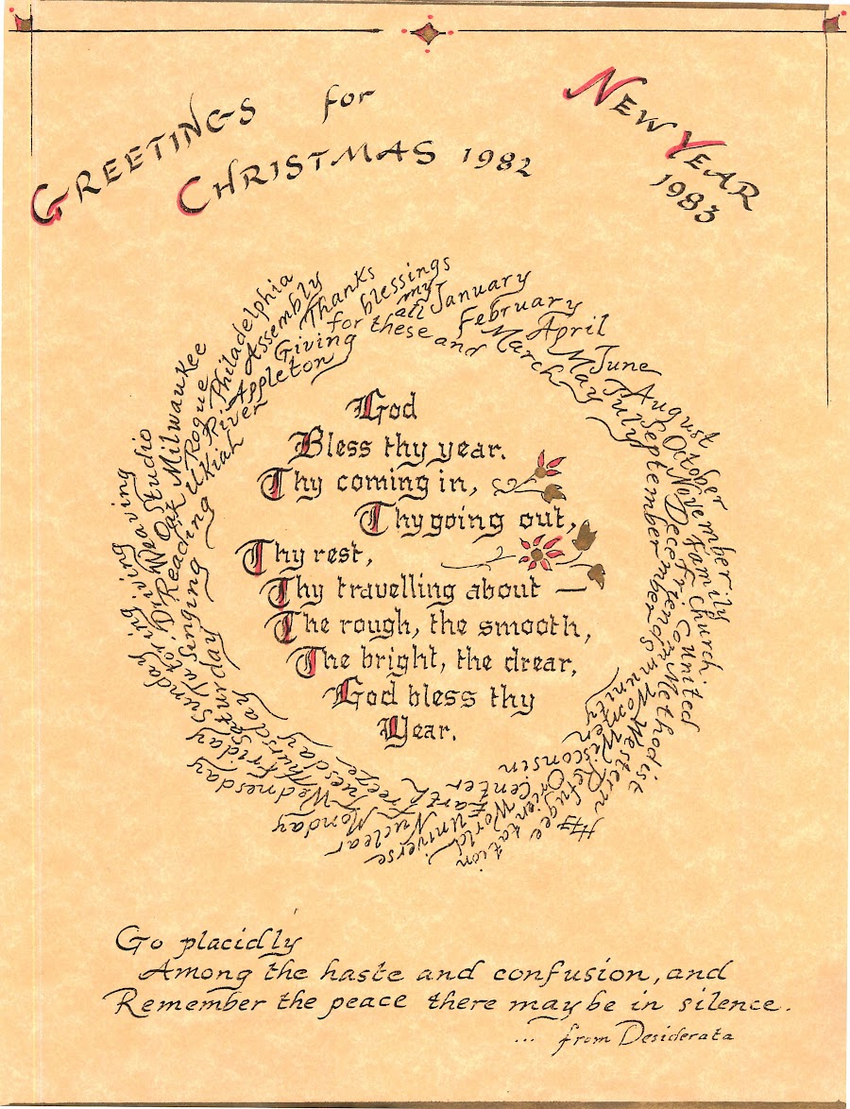 GREETINGS for
CHRISTMAS 1982
NEW YEAR
1983
Thanks
Giving
for these
blessings
my
all
and
January
February
March
April
May
June
July
August
September
October
November
December
Family
Friends
Church
United
Methodist
Women
Western
Wisconsin
Refugee
Orientation
Center
World
Universe
Earth
Nuclear
Freeze
Monday
Tuesday
Wednesday
Thursday
Friday
Saturday
Sunday
Singing
Reading
Driving
Weaving
Studio
Oak
Milwaukee
Ukiah
Rogue
River
Appleton
Philadelphia
Assembly
God
Bless thy year.
Thy coming in,
Thy going out,
Thy rest,
Thy travelling about —
The rough, the smooth,
The bright, the drear,
God bless thy
Year.
Go placidly
Among the haste and confusion, and
Remember the peace there may be in silence.
... from Desiderata